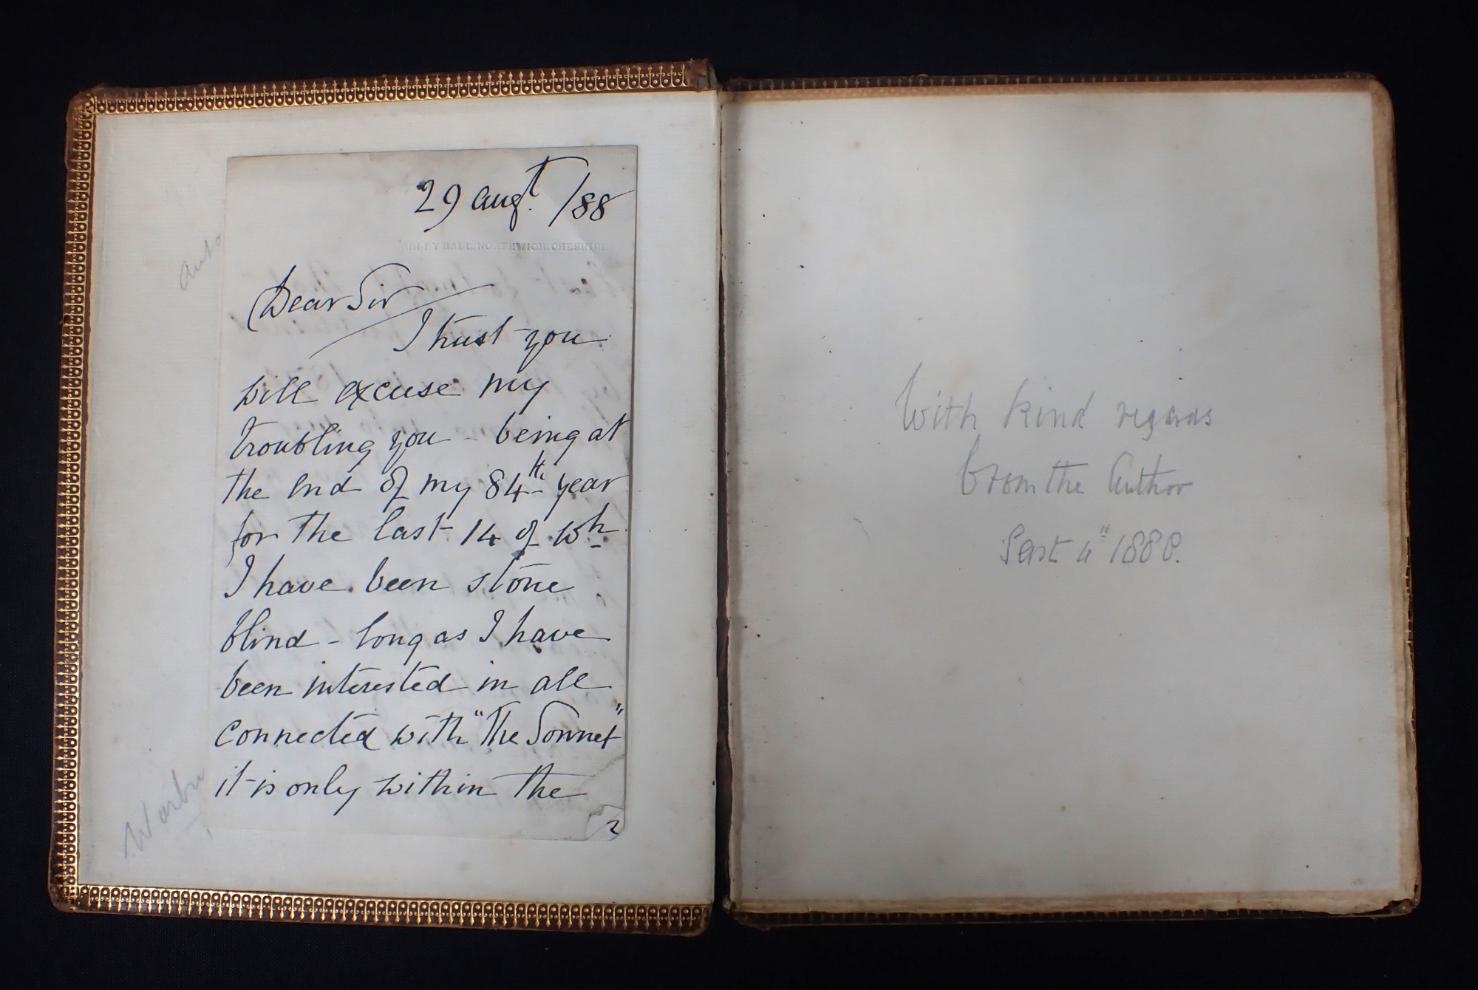 29 Augt. /88
HALL, NORTHWICH, CHESHIRE
Dear Sir
I trust you
will excuse my
troubling you - being at
the end of my 84th year
for the last 14 of wh
I have been stone
blind - long as I have
been interested in all
connected with "The Sonnet"
it is only within the
2
Auto
Warbu
With kind regards
from the Author
Sept 4th 1888.